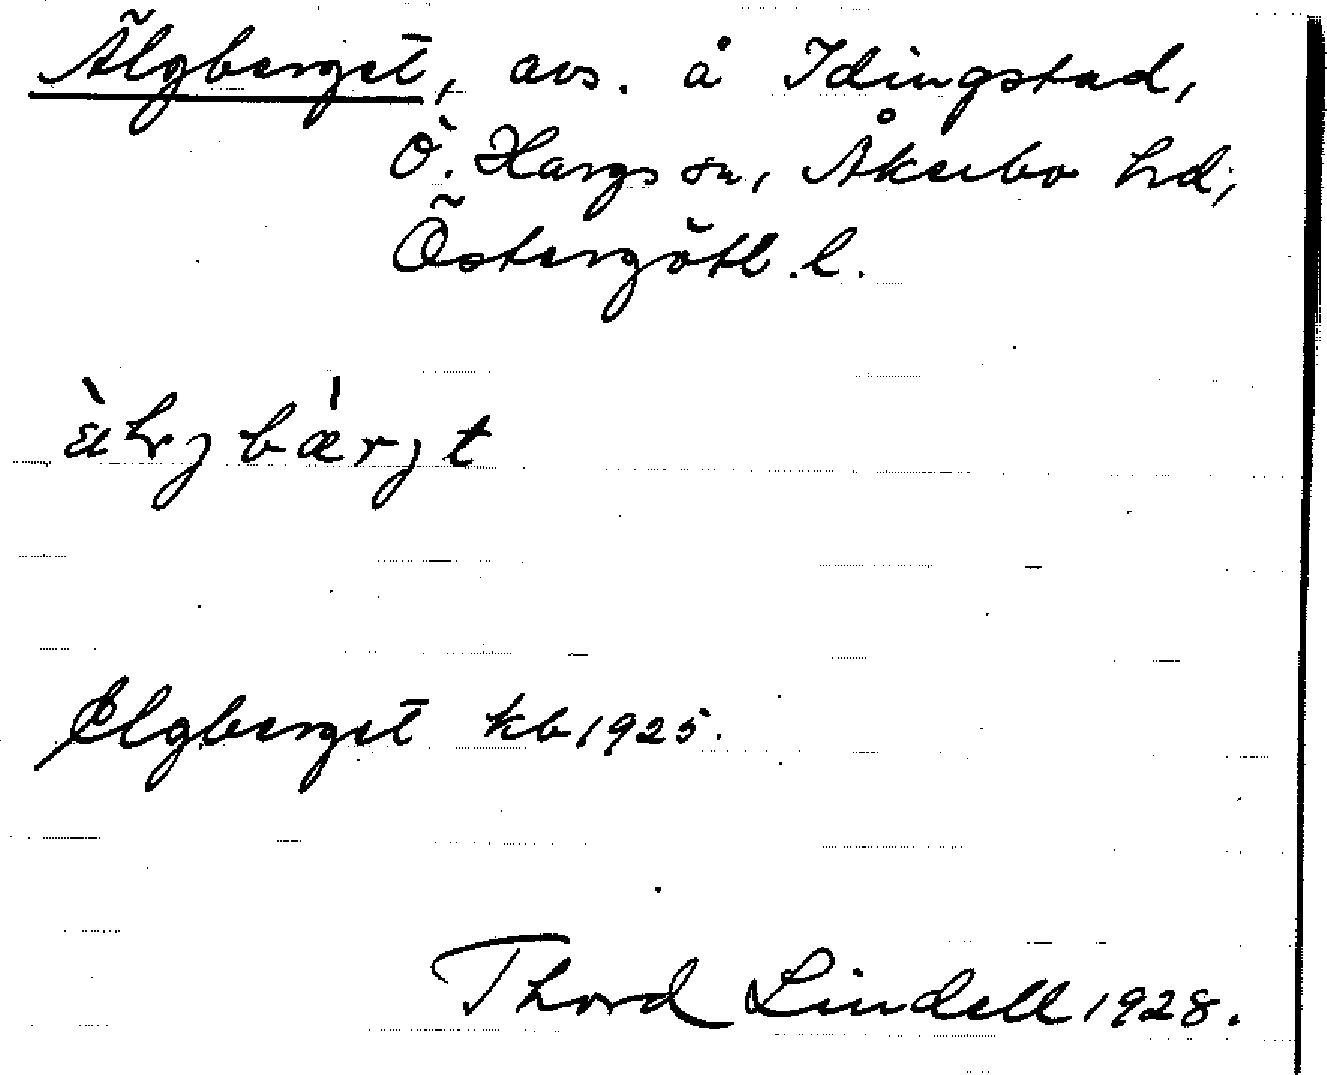 Älgberget, avs. å Idingstad,
Ö. Hargs sn, Åkerbo hd,
Östergötl. l.
Elgberget kb 1925.
Thord Lindell 1928.